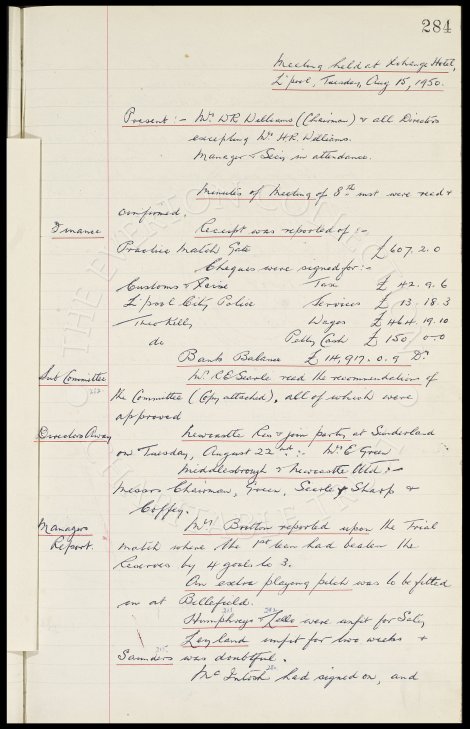 284
Meeting held at Exchange Hotel,
L'pool, Tuesday, Aug 15, 1950.
Present :- Mr. W.R. Williams (Chairman) & all Directors
excepting Mr. H.R. Williams.
Manager & Secy in attendance.
Minutes of Meeting of 8th inst were read &
confirmed.
Finance Receipt was reported of :-
Practice Match Gate £607. 2. 0
Cheques were signed for :-
Customs & Excise Tax £ 42. 9. 6
L'pool City Police Services £ 13. 18. 3
Theo Kelly Wages £464. 19. 10
do Petty Cash £ 150. 0. 0
Bank Balance £14,917. 0. 9 Dr.
Sub Committee Mr. R.E. Searle read the recommendations of
the Committee (Copy attached), all of which were
approved
Directors Away Newcastle Res & join party at Sunderland
on Tuesday, August 22nd :- Mr. E Green
Middlesbrough & Newcastle Utd :-
Messrs Chairman, Green, Searle & Sharp &
Coffey.
Managers Mr. Britton reported upon the Trial
Report. match where the 1st team had beaten the
Reserves by 4 goals to 3.
An extra playing pitch was to be fitted
on at Bellefield.
Humphreys & Lello were unfit for Saty
Leyland unfit for two weeks &
Saunders was doubtful.
McIntosh had signed on, and
THE EVERTON COLLECTION